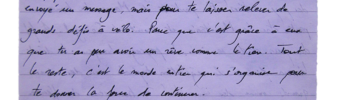 envoyé un message, mais pour te laisser relever de
grands défis à vélo. Parce que c'est grâce à eux
que tu as pu avoir un rêve comme le tien. Tout
le reste, c'est le monde entier qui s'organise pour
te donner la force de continuer.